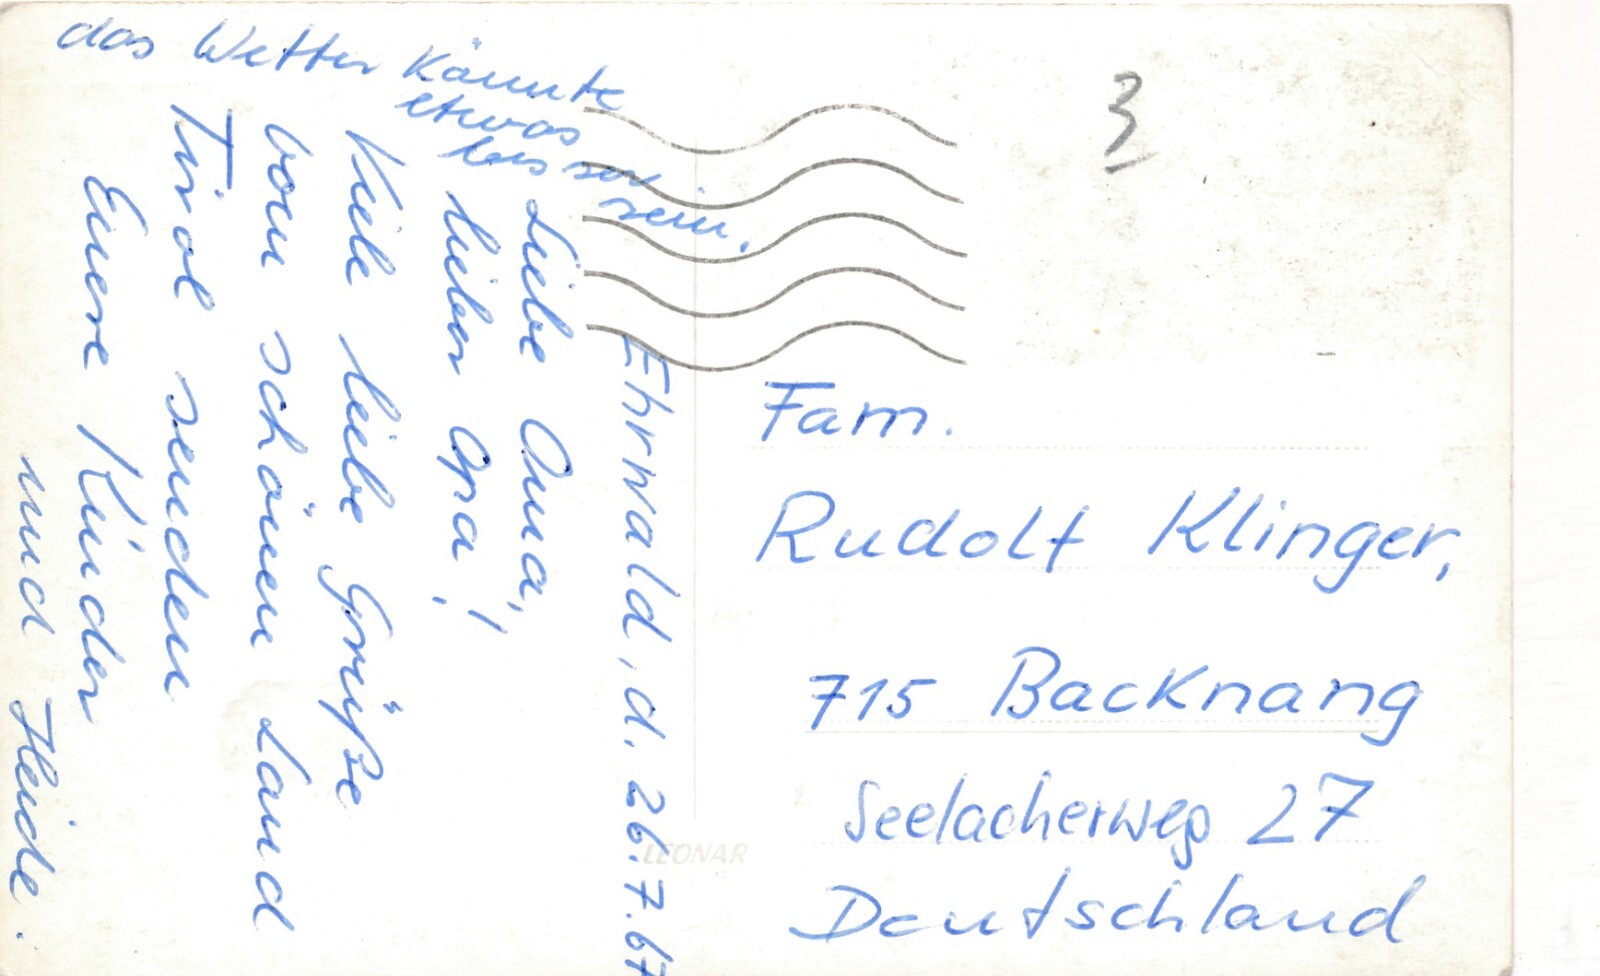 Ehrwald, d. 26.7.67
Liebe Oma,
lieber Opa!
Viele liebe Grüße
vom schönen Land
Tirol senden
Euere Kinder
und Heide.
das Wetter könnte
etwas
besser
sein.
3
Fam.
Rudolf Klinger,
715 Backnang
Seelacherweg 27
Deutschland
LEONAR